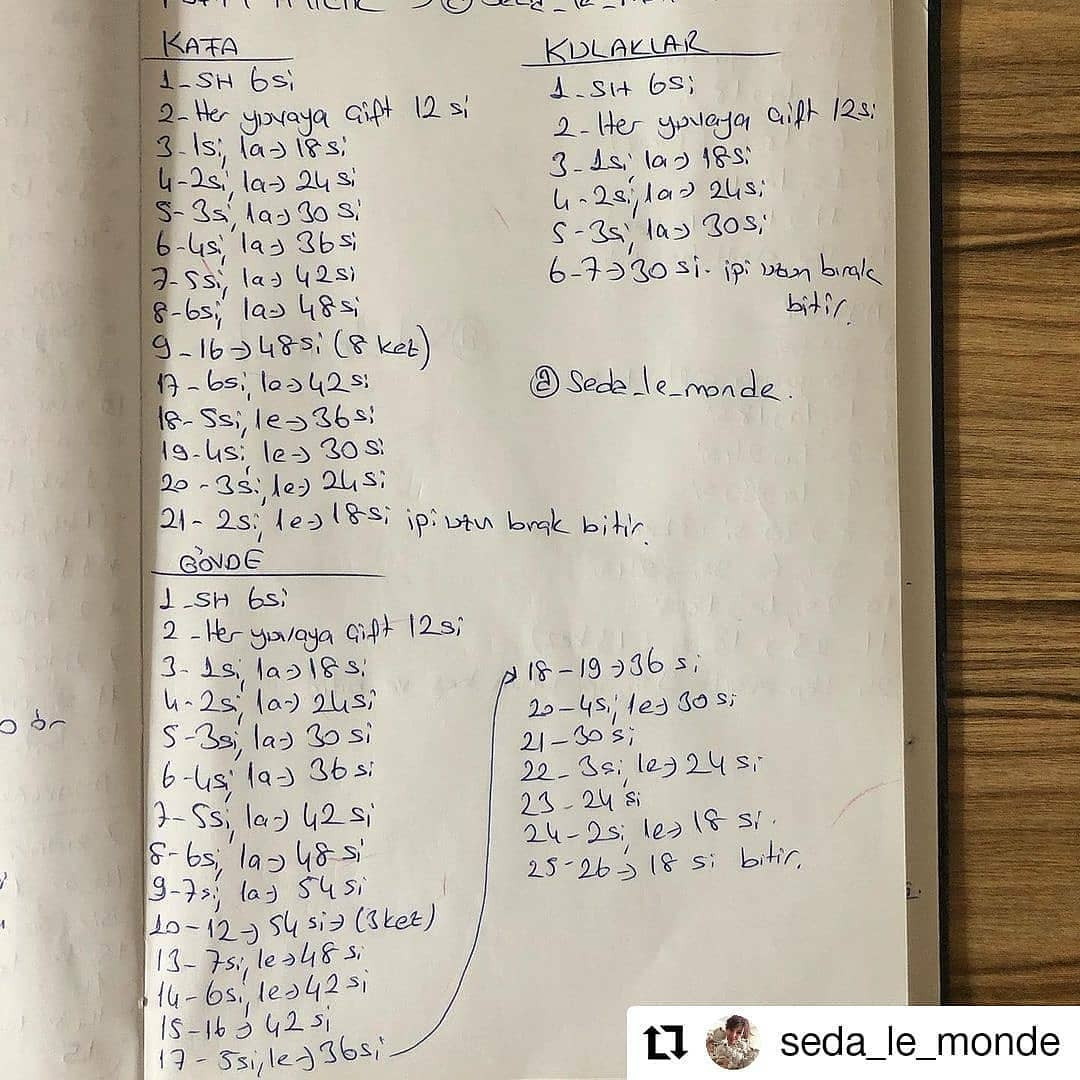 KAFA
1-SH 6si
2-Her yuvaya çift 12 si
3-1si, 1a→18si
4-2si, 1a→ 24 si
5-3si, 1a→30 si
6-4si, 1a→ 36 si
7-5si, 1a→ 42 si
8-6si, 1a→ 48si
9-16→48si (8 kez)
17-6si, 1e→42si
18-5si, 1e→36si
19-4si, 1e→ 30 si
20-3si, 1e→ 24si
21-2si, 1e→ 18si ipi uzun bırak bitir.
GÖVDE
1-SH 6si
2-Her yuvaya çift 12si
3-1si, 1a→18 si
4-2si, 1a→ 24si
5-3si, 1a→ 30 si
6-4si, 1a→ 36 si
7-5si, 1a→ 42 si
8-6si, 1a→ 48 si
9-7si, 1a→ 54 si
10-12→ 54 si→ (3 kez)
13-7si, 1e→48 si
14-6si, 1e→42 si
15-16→ 42 si
17-5si, 1e→36si
18-19→36 si
20-4si, 1e→ 30 si
21-30 si
22-3si, 1e→ 24 si
23-24 si
24-2si, 1e→ 18 si.
25-26→ 18 si bitir.
KULAKLAR
1-SH 6si
2-Her yuvaya çift 12si
3-1si, 1a→ 18si
4-2si, 1a→ 24si
5-3si, 1a→ 30si
6-7→30 si. ipi uzun bırak
bitir.
@seda_le_monde.
seda_le_monde